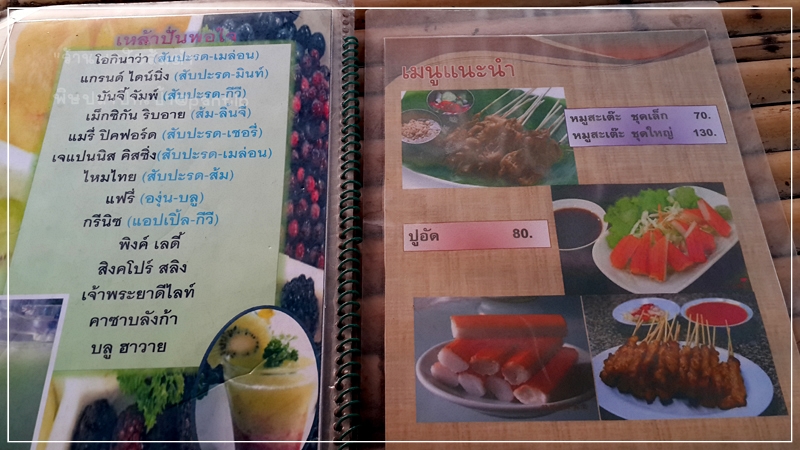 เหล้าปั่นพอใจ
โอกินาว่า (สับปะรด-เมล่อน)
แกรนด์ ไดน์นิ่ง (สับปะรด-มินท์)
บันจี้ จัมพ์ (สับปะรด-กีวี)
เม็กซิกัน ริบอาย (ส้ม-ลิ้นจี่)
แมรี่ ปิคฟอร์ด (สับปะรด-เชอรี่)
เจแปนนิส คิสซิ่ง(สับปะรด-เมล่อน)
ไหมไทย (สับปะรด-ส้ม)
แฟรี่ (องุ่น-บลู)
กรีนิช (แอปเปิ้ล-กีวี)
พิงค์ เลดี้
สิงคโปร์ สลิง
เจ้าพระยาดีไลท์
คาซาบลังก้า
บลู ฮาวาย
เมนูแนะนำ
หมูสะเต๊ะ ชุดเล็ก 70.
หมูสะเต๊ะ ชุดใหญ่ 130.
ปูอัด 80.